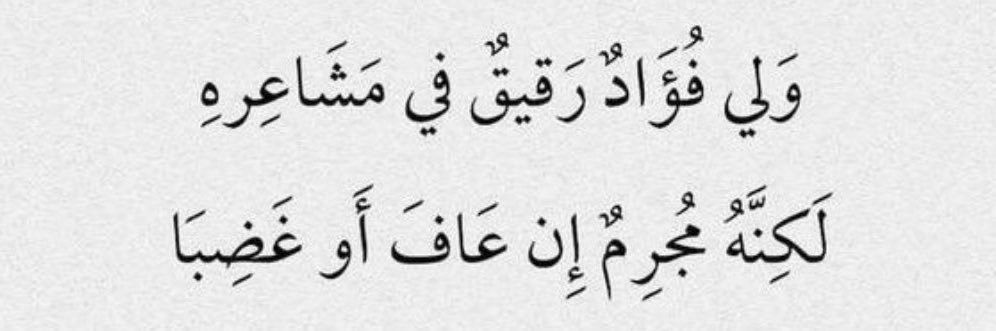 وَلي فُؤَادٌ رَقيقٌ في مَشَاعِرهِ
لَكِنَّهُ مُجرِمٌ إِن عَافَ أَو غَضِبَا